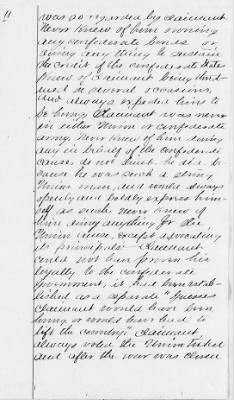 11
was so regarded by claimant
Never knew of him owning
any confederate bonds or
doing any thing to sustain
the credit of the confederate States
Knew of claimant being threat-
ened on several occasions
and always expected him to
be hung Claimant was never
in either Union or confederate
army Never knew of him doing
any in behalf of the confederate
cause, do not think he did be
cause he was such a strong
Union man and would always
openly and boldly express him-
self as such Never knew of
him doing anything for the
Union cause except advocating
its principals Claimant
could not have proven his
loyalty to the confederate
government, if it had been estab-
lished as a separate "Guesses
claimant would have been
hung or would have had to
left the country" Claimant
always voted the Union ticket
and after the war was closed